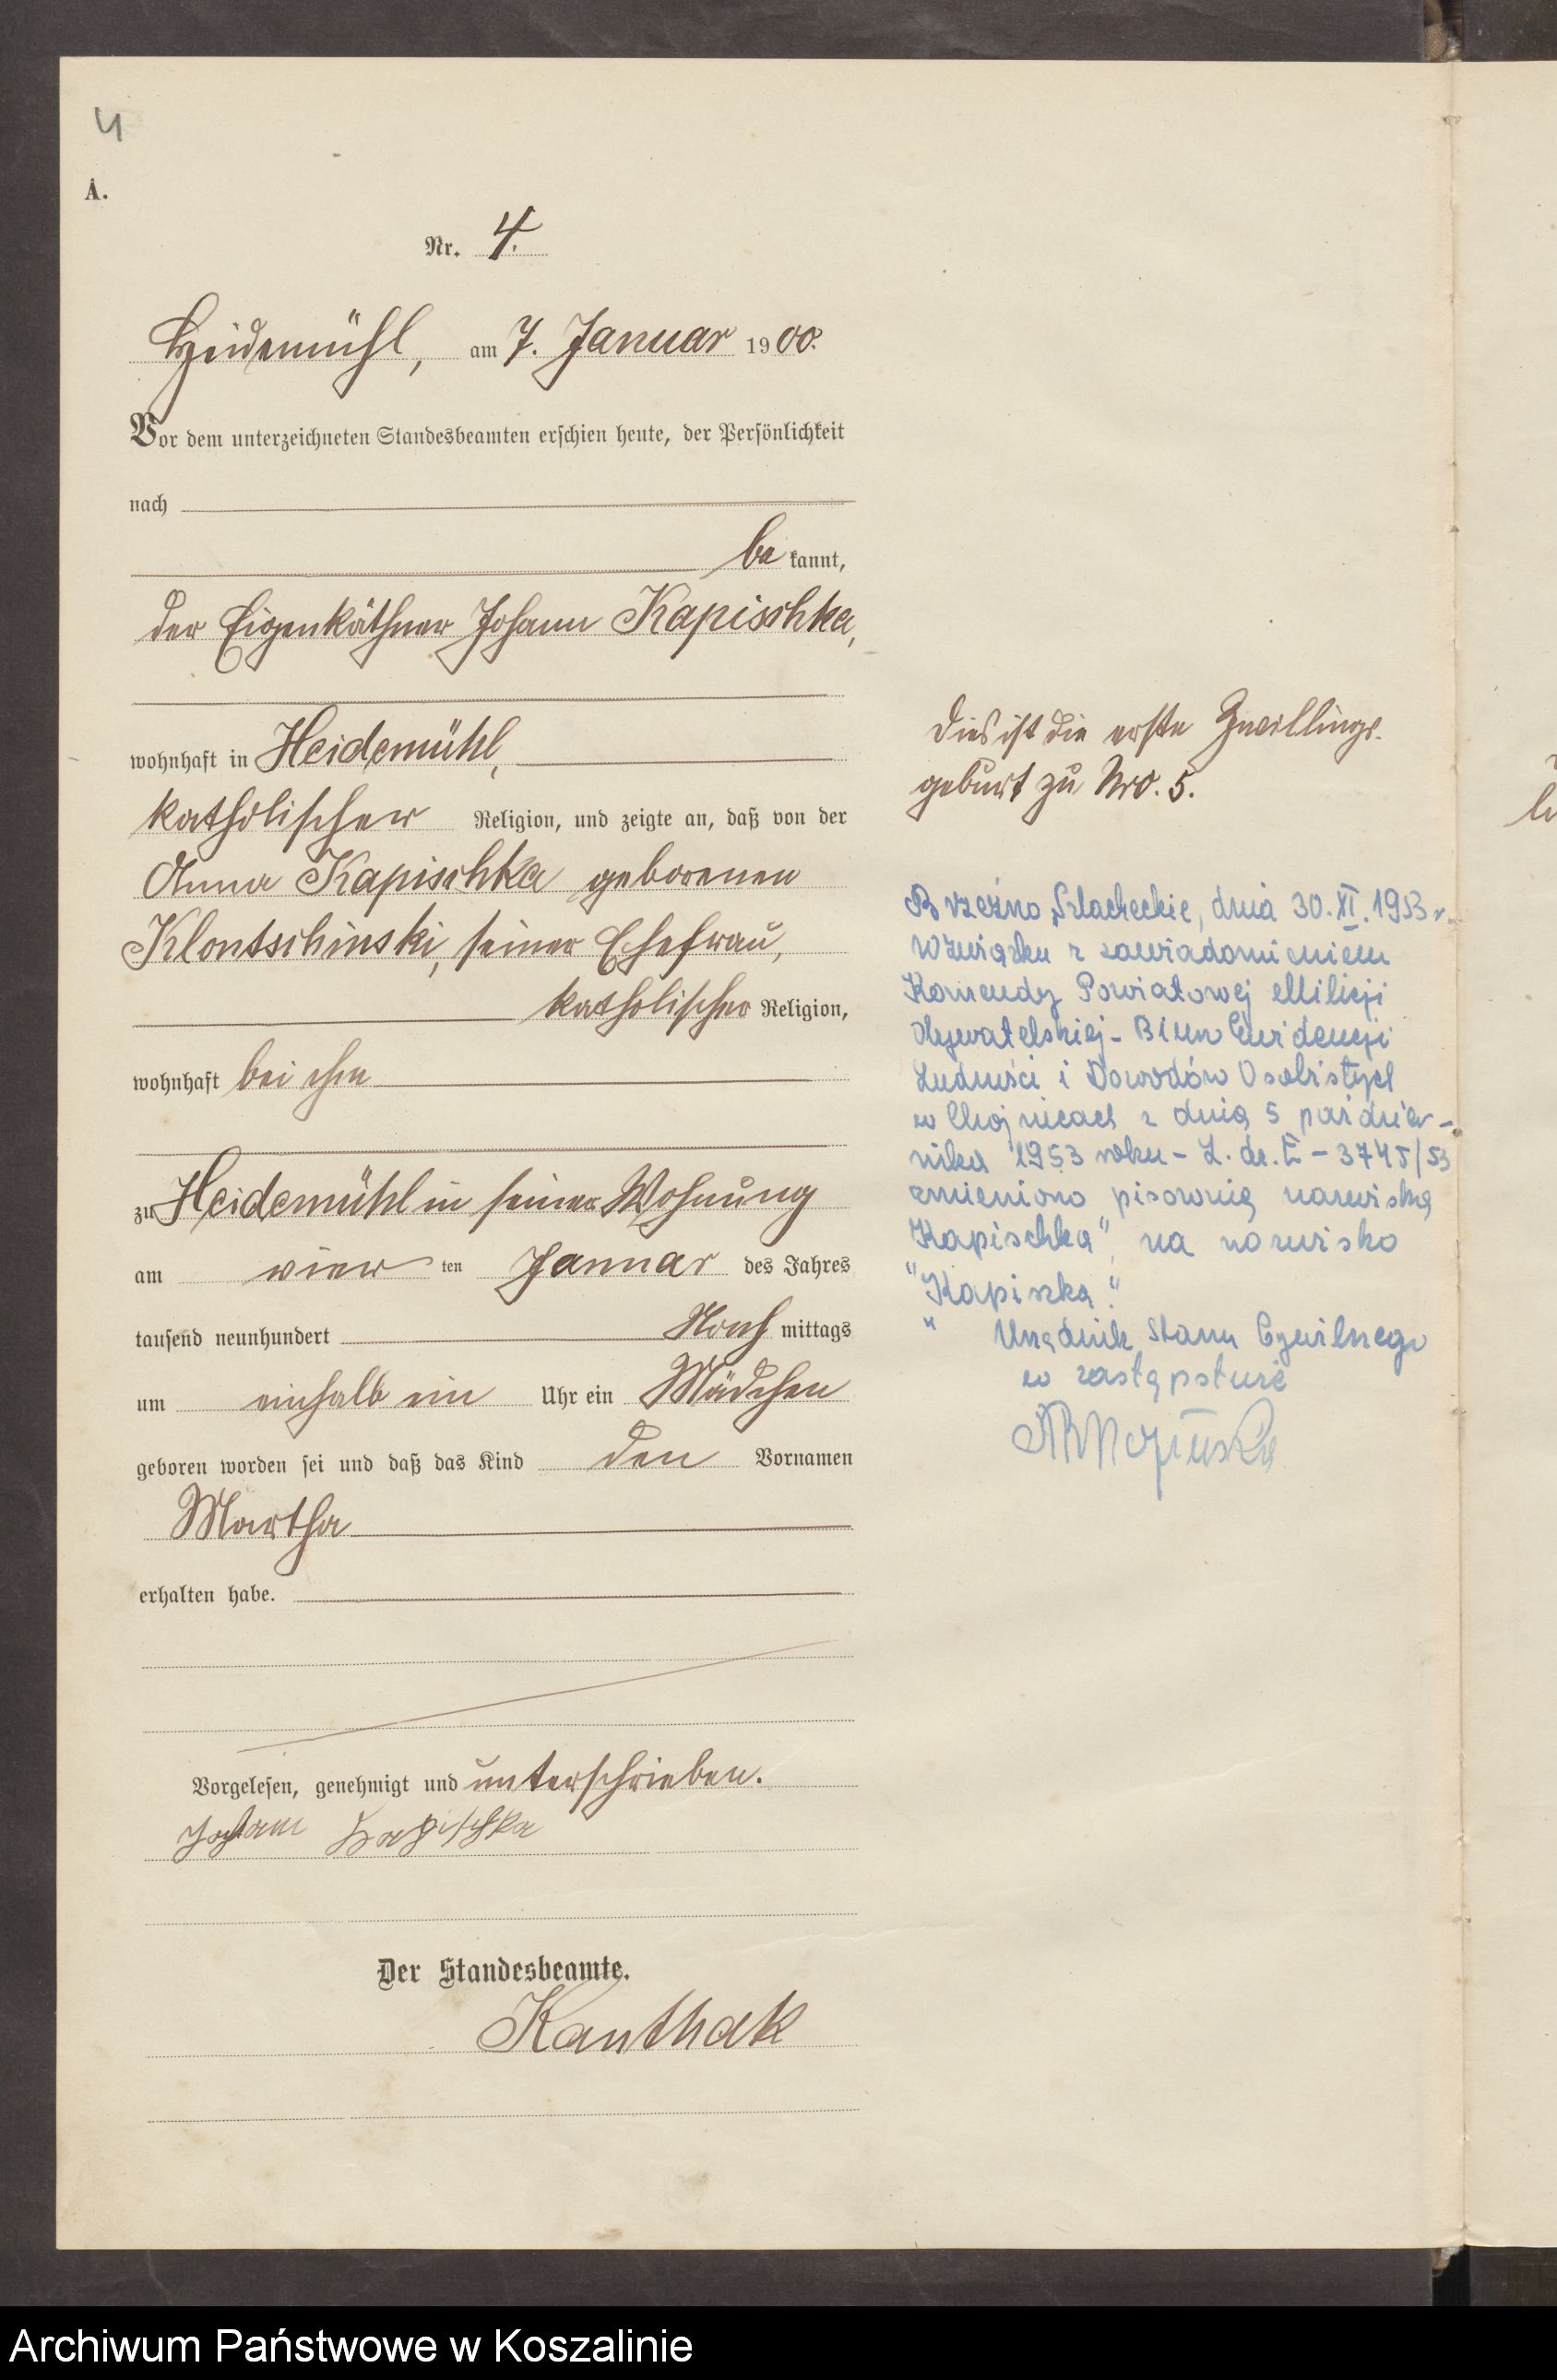 4
A.
Nr. 4.
Heidemühl, am 7. Januar 1900.
Vor dem unterzeichneten Standesbeamten erschien heute, der Persönlichkeit
nach
be kannt,
der Eigenkäthner Johann Kapischka,
wohnhaft in Heidemühl,
katholischer Religion, und zeigte an, daß von der
Anna Kapischka geborenen
Klontschinski, seiner Ehefrau,
katholischer Religion,
wohnhaft bei ihm
zu Heidemühl in seiner Wohnung
am vier ten Januar des Jahres
tausend neunhundert Nach mittags
um einhalb ein Uhr ein Mädchen
geboren worden sei und daß das Kind den Vornamen
Martha
erhalten habe.
Vorgelesen, genehmigt und unterschrieben.
Johann Kapischka
Der Standesbeamte.
Kanthak
Dies ist die erste Zwillings-
geburt zu Nro. 5.
Brzeźno Szlacheckie, dnia 30.XI.1953 r.
W związku z zawiadomieniem
Komendy Powiatowej Milicji
Obywatelskiej - Biuro Ewidencji
Ludności i Dowodów Osobistych
w Chojnicach z dnia 5 paździer-
nika 1953 roku - L. dz. - 3745/53
zmieniono pisownię nazwiska
Kapischka", na nazwisko
"Kapiszka."
Urzędnik Stanu Cywilnego
w zastępstwie
Archiwum Państwowe w Koszalinie